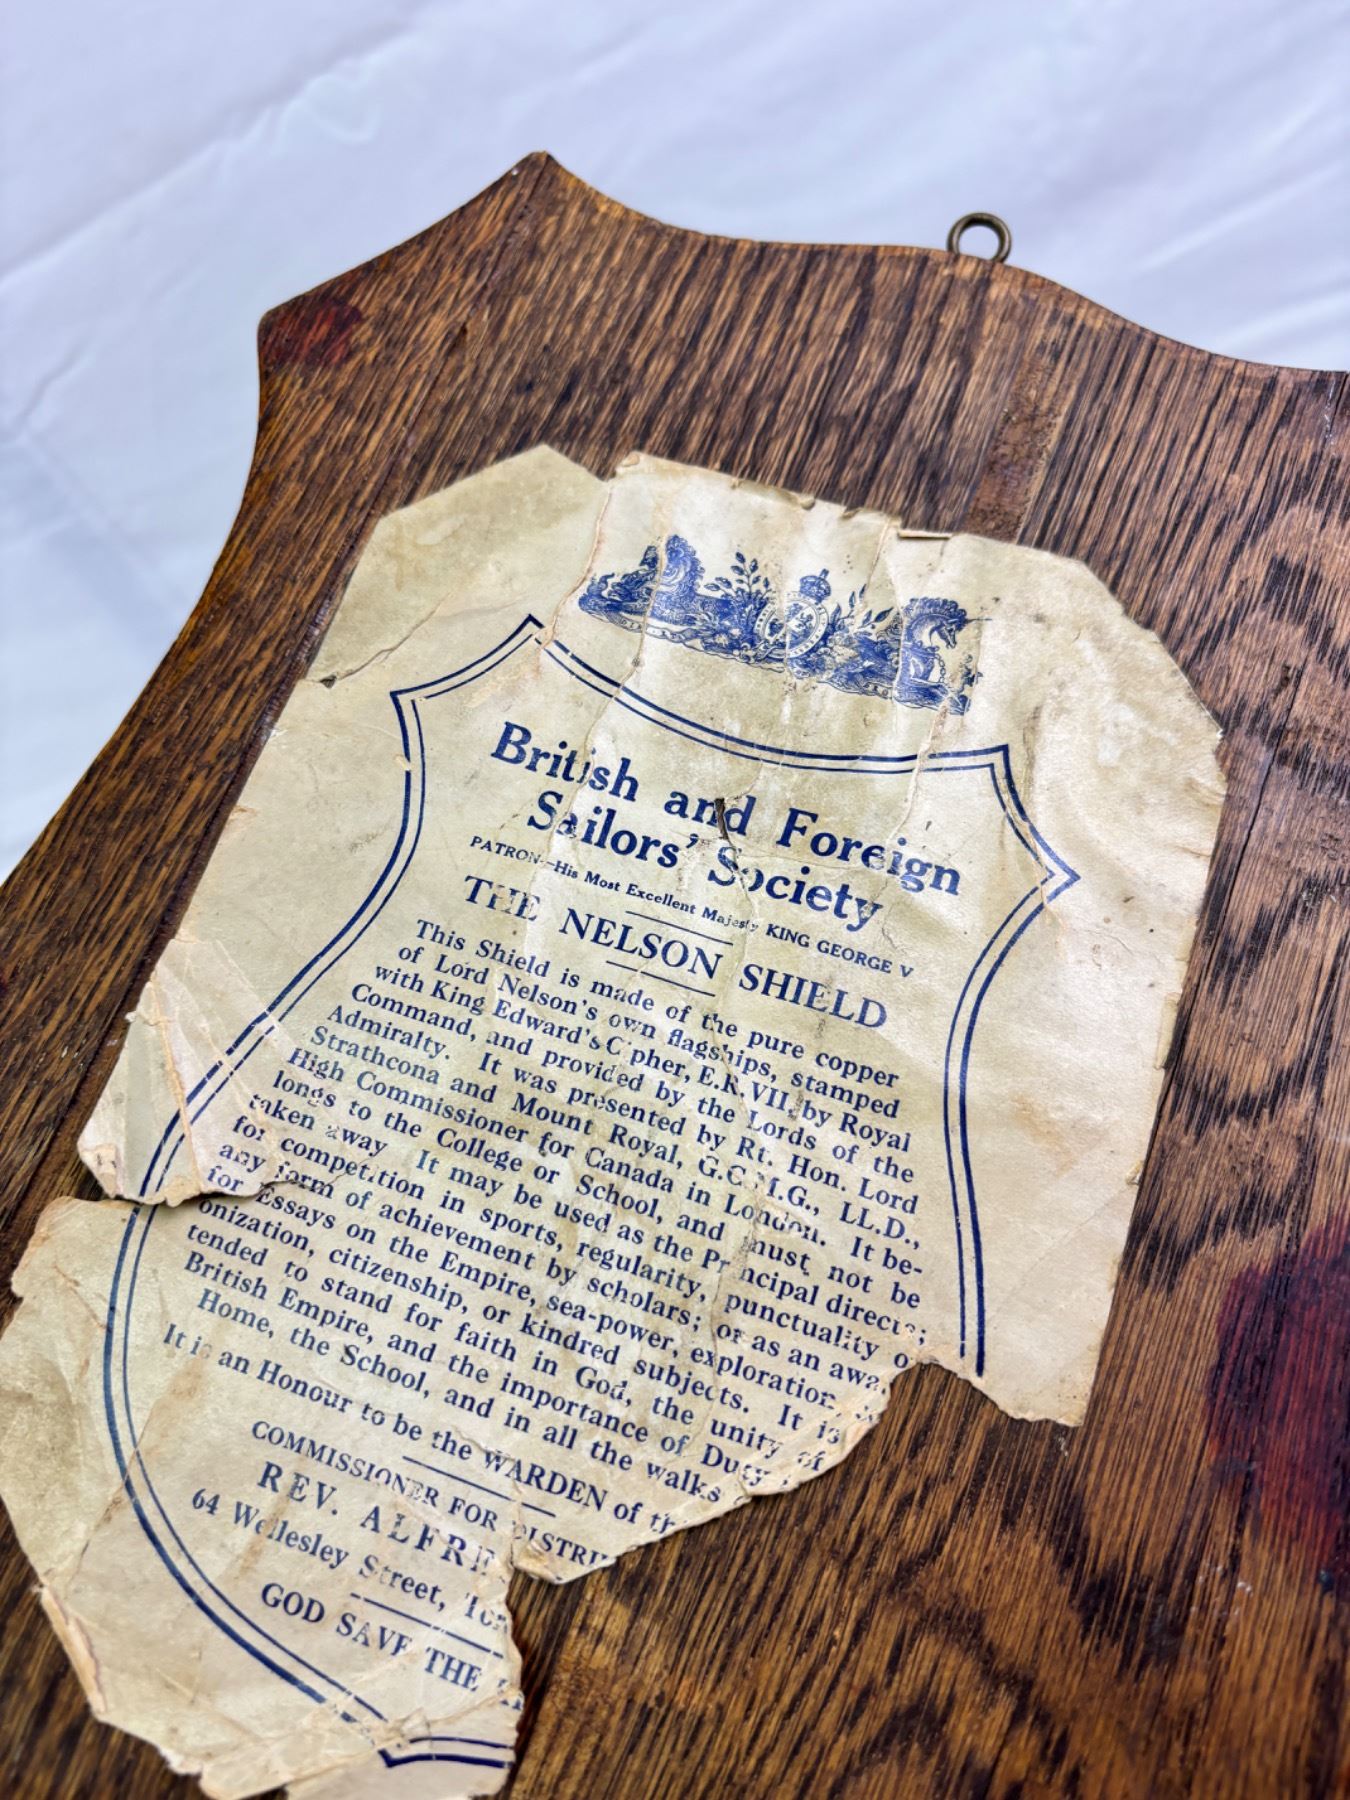 British and Foreign
Sailors' Society
PATRON—His Most Excellent Majesty KING GEORGE V
THE NELSON SHIELD
This Shield is made of the pure copper
of Lord Nelson's own flagships, stamped
with King Edward's Cipher, E.R. VII, by Royal
Command, and provided by the Lords of the
Admiralty. It was presented by Rt. Hon. Lord
Strathcona and Mount Royal, G.C.M.G., LL.D.,
High Commissioner for Canada in London. It be-
longs to the College or School, and must not be
taken away It may be used as the Principal directs;
for competition in sports, regularity, punctuality or
any form of achievement by scholars; or as an
for Essays on the Empire, sea-power, exploration,
onization, citizenship, or kindred subjects. It is
tended to stand for faith in God, the unity of
British Empire, and the importance of Duty
Home, the School, and in all the walks
It is an Honour to be the WARDEN of
COMMISSIONER FOR
REV.
64 Wellesley Street,
GOD SAVE THE